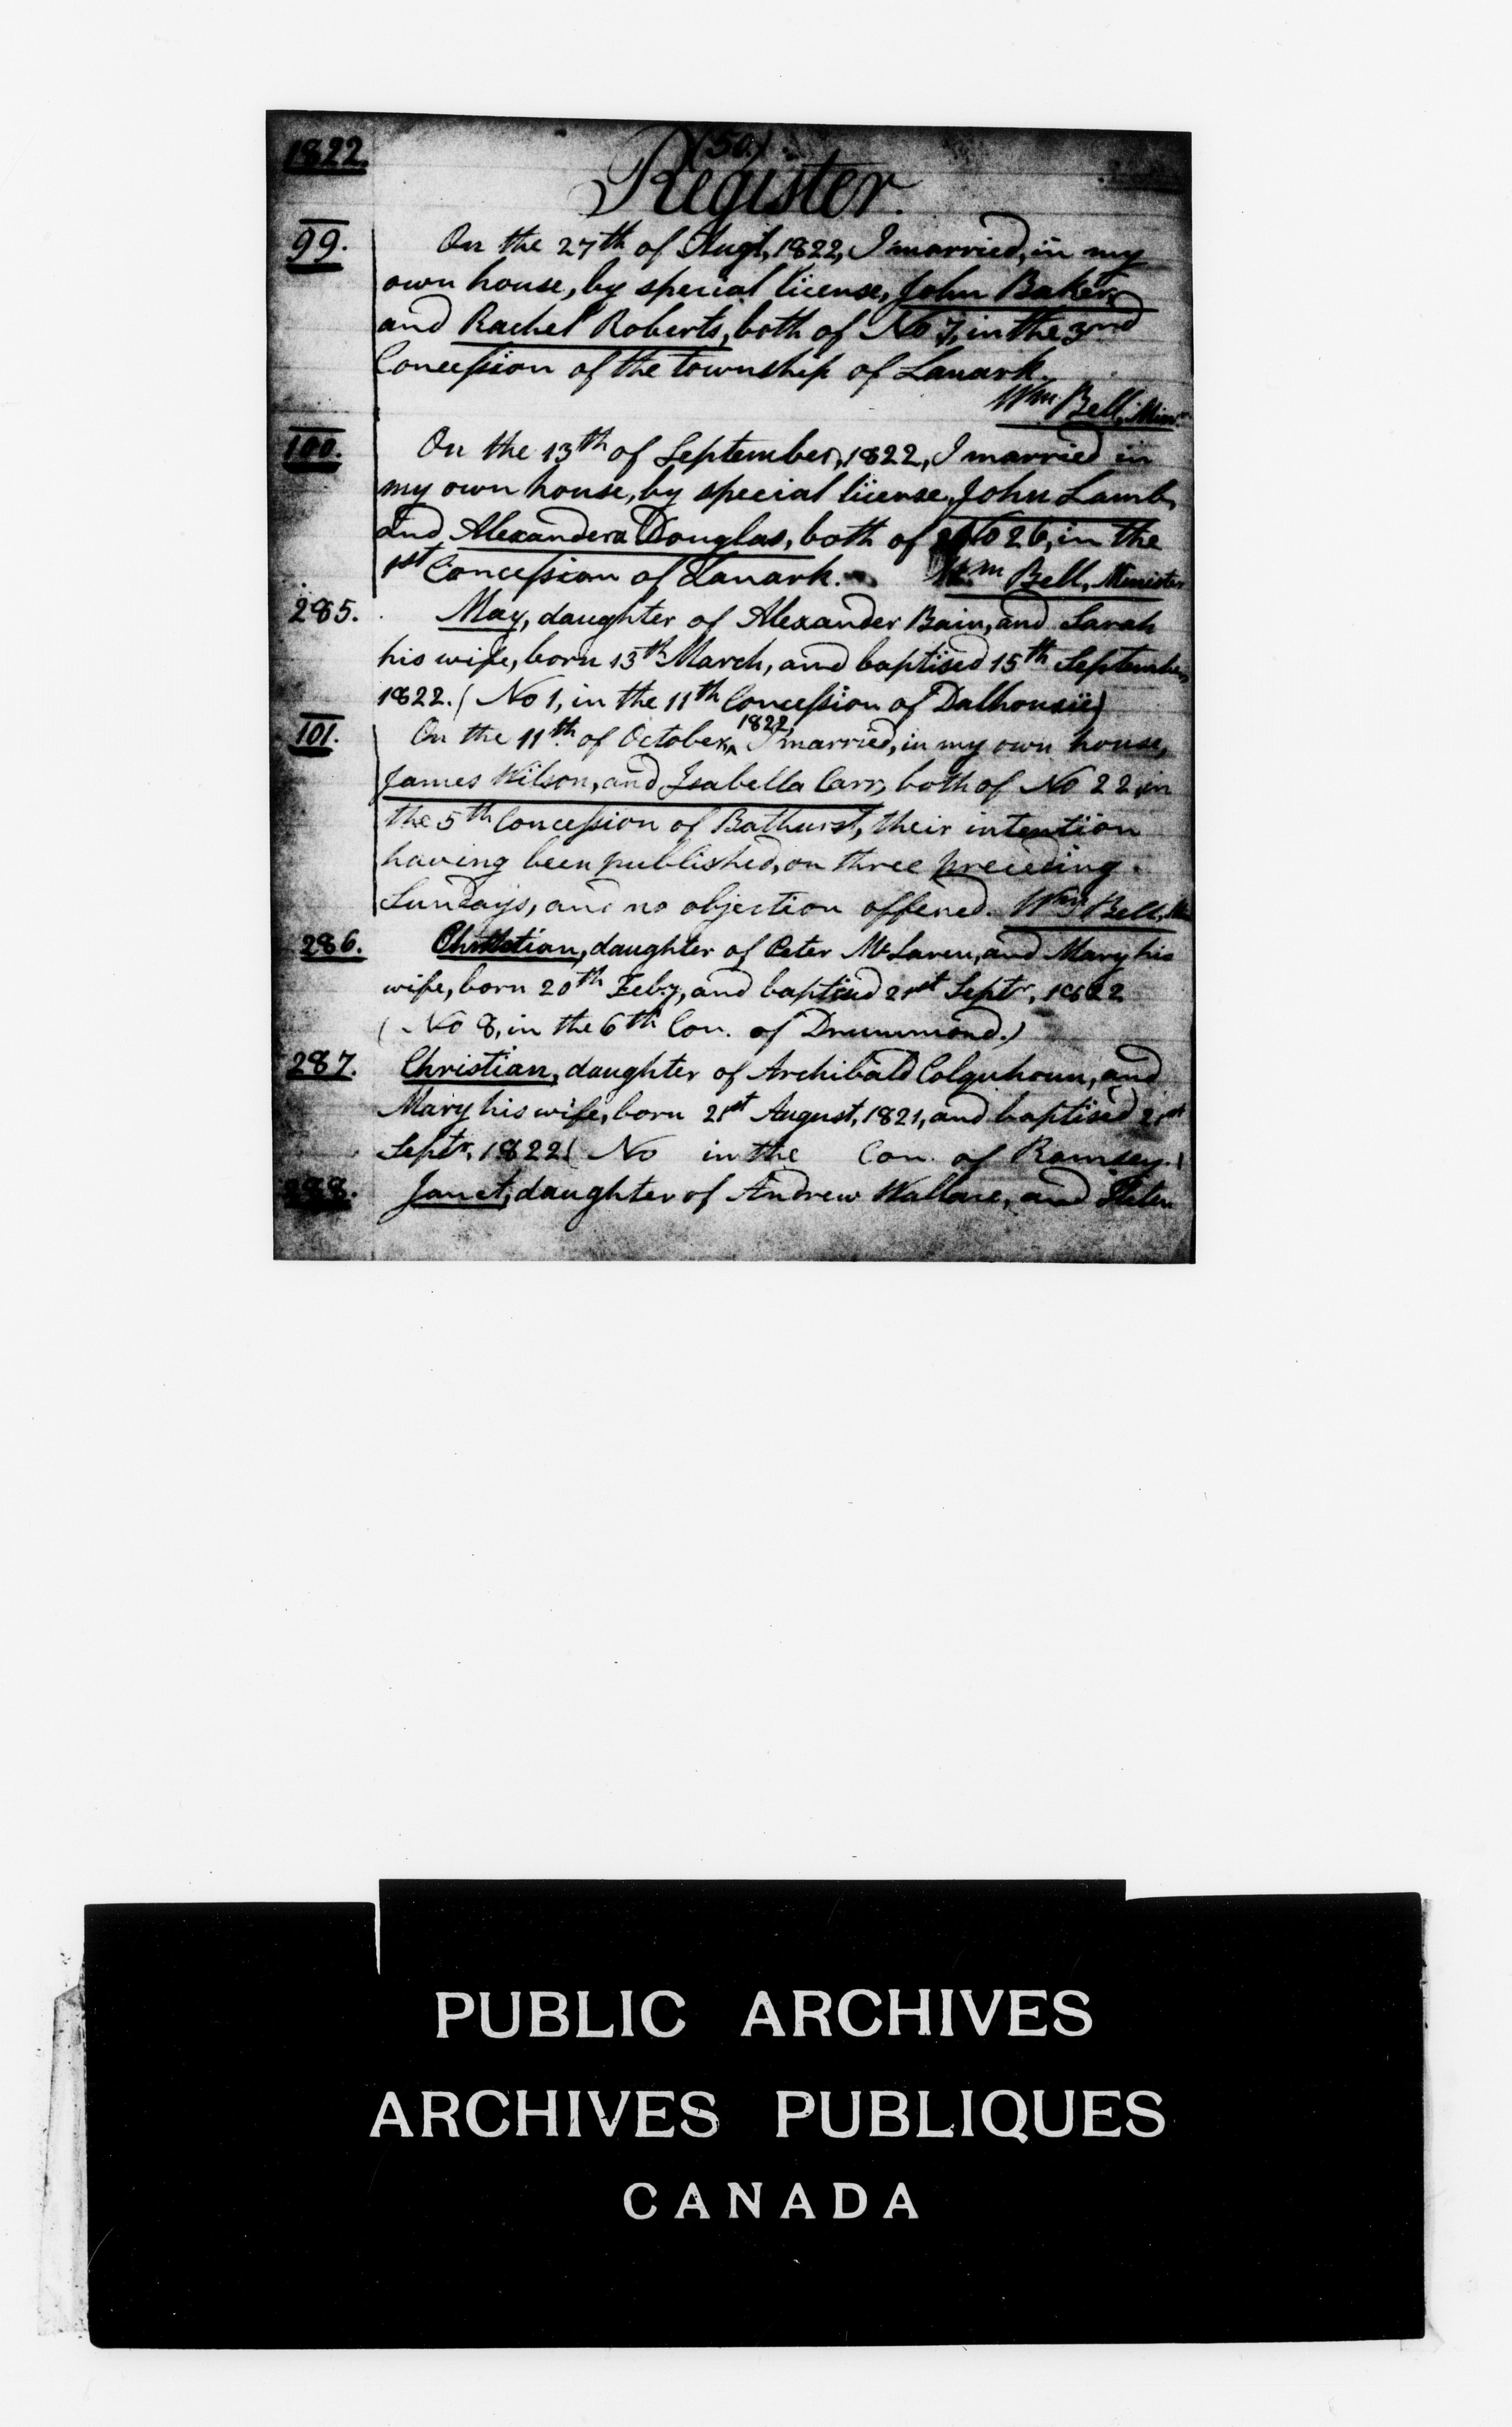 1822.
(50.)
Register.
99. On the 27th of Augt, 1822, I married, in my
own house, by special license, John Baker,
and Rachel Roberts, both of No 7, in the 3nd
Concession of the township of Lanark.
Wm Bell, Minr.
100. On the 13th of September, 1822, I married in
my own house, by special license, John Lamb,
and Alexandera Douglas, both of No 26, in the
1st Concession of Lanark. Wm Bell, Minister
285. May, daughter of Alexander Bain, and Sarah
his wife, born 13th March, and baptised 15th September,
1822. (No 1, in the 11th Concession of Dalhousie)
101. On the 11th of October, 1822, I married, in my own house,
James Wilson, and Isabella Carr, both of No 22 in
the 5th Concession of Bathurst, their intention
having been published, on three preceding
Sundays, and no objection offered. Wm Bell, Mi
286. Christian, daughter of Peter McLaren, and Mary his
wife, born 20th Feby, and baptised 21st Septr, 1822
(No 8, in the 6th Con. of Drummond.)
287. Christian, daughter of Archibald Colquhoun, and
Mary his wife, born 21st August, 1821, and baptised 21st
Septr, 1822 (No in the Con. of Ramsey.)
288. Janet, daughter of Andrew Wallace, and
PUBLIC ARCHIVES
ARCHIVES PUBLIQUES
CANADA